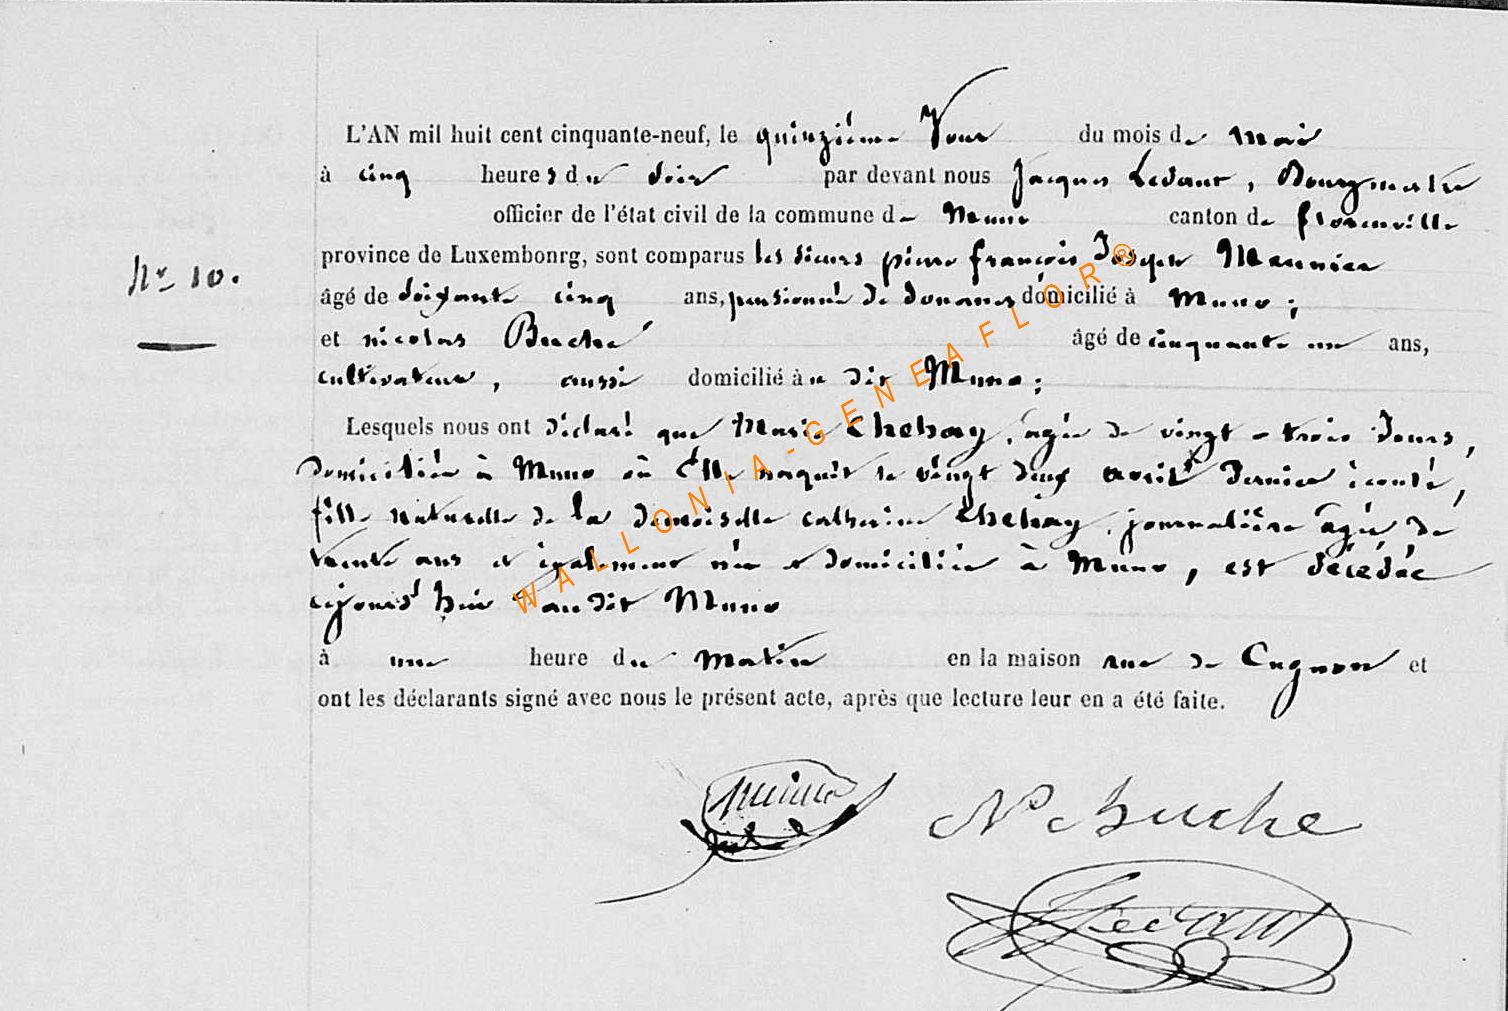 L'AN mil huit cent cinquante-neuf, le quinzième Jour du mois de Mai
à cinq heures du soir par devant nous Jacques Ledant, Bourgmestre
officier de l'état civil de la commune de Muno canton de florenville
Nº 10.
province de Luxembonrg, sont comparus les sieurs pierre françois Joseph Meunier
âgé de soixante cinq ans, pensionné de douanes domicilié à Muno;
et nicolas Buché âgé de cinquante un ans,
cultivateur, aussi domicilié au dit Muno;
Lesquels nous ont déclaré que Marie Chehay, agée de vingt-trois Jours,
domiciliée à Muno où Elle naquit le vingt deux avril dernier écoulé,
fille naturelle de la demoiselle catherine Chehay, journalière agée de
trente ans et également née et domiciliée à Muno, est décédée
cejourd'hui audit Muno
à une heure du Matin en la maison rue de Cugnon et
ont les déclarants signé avec nous le présent acte, après que lecture leur en a été faite.
N Buche
Ledant
WALLONIA-GENEAFLOR®